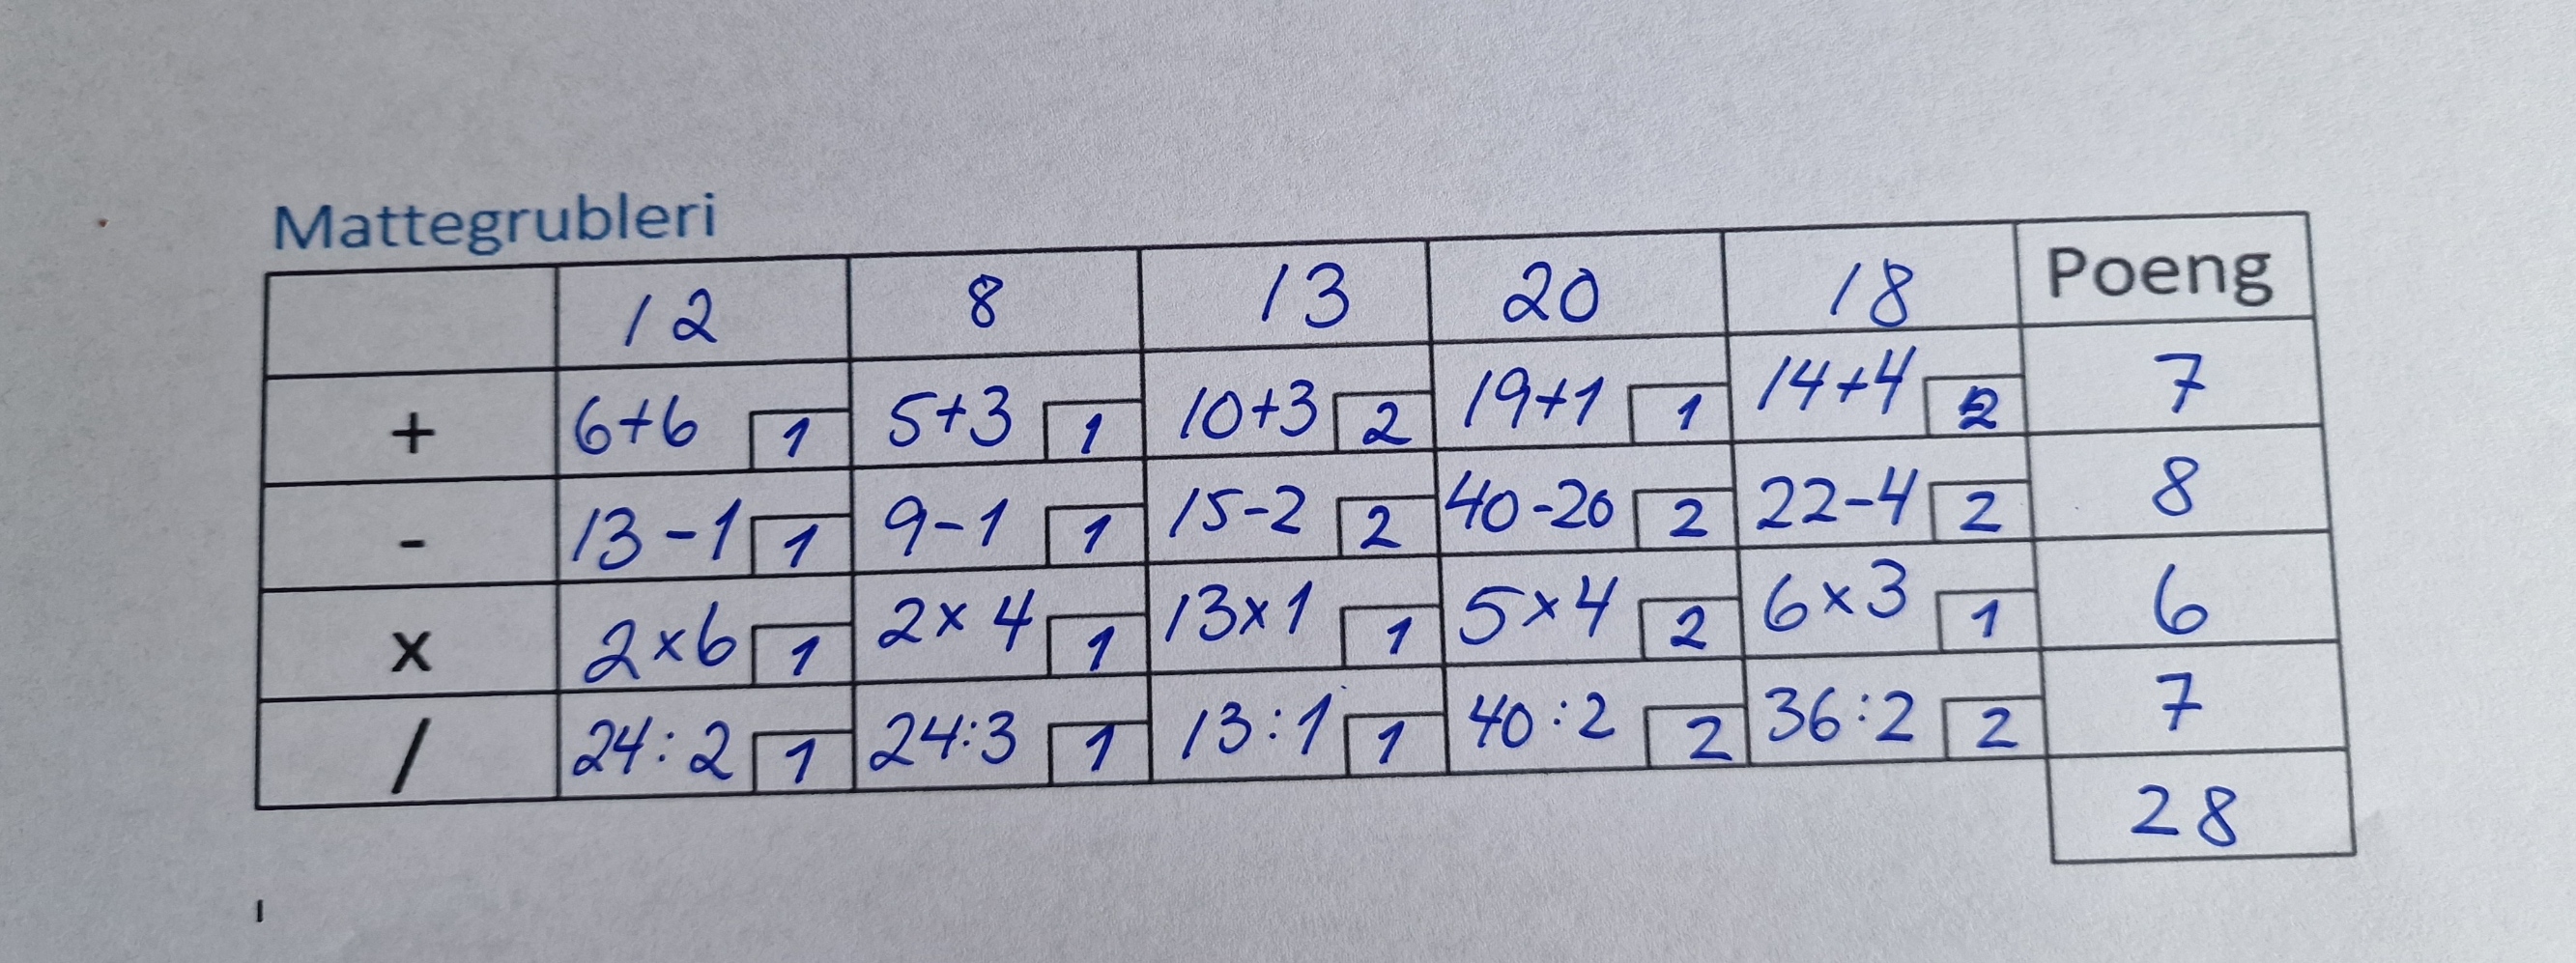 Mattegrubleri
12 8 13 20 18 Poeng
+ 6+6 1 5+3 1 10+3 2 19+1 1 14+4 2 7
- 13-1 1 9-1 1 15-2 2 40-20 2 22-4 2 8
x 2x6 1 2x4 1 13x1 1 5x4 2 6x3 1 6
/ 24:2 1 24:3 1 13:1 1 40:2 2 36:2 2 7
28